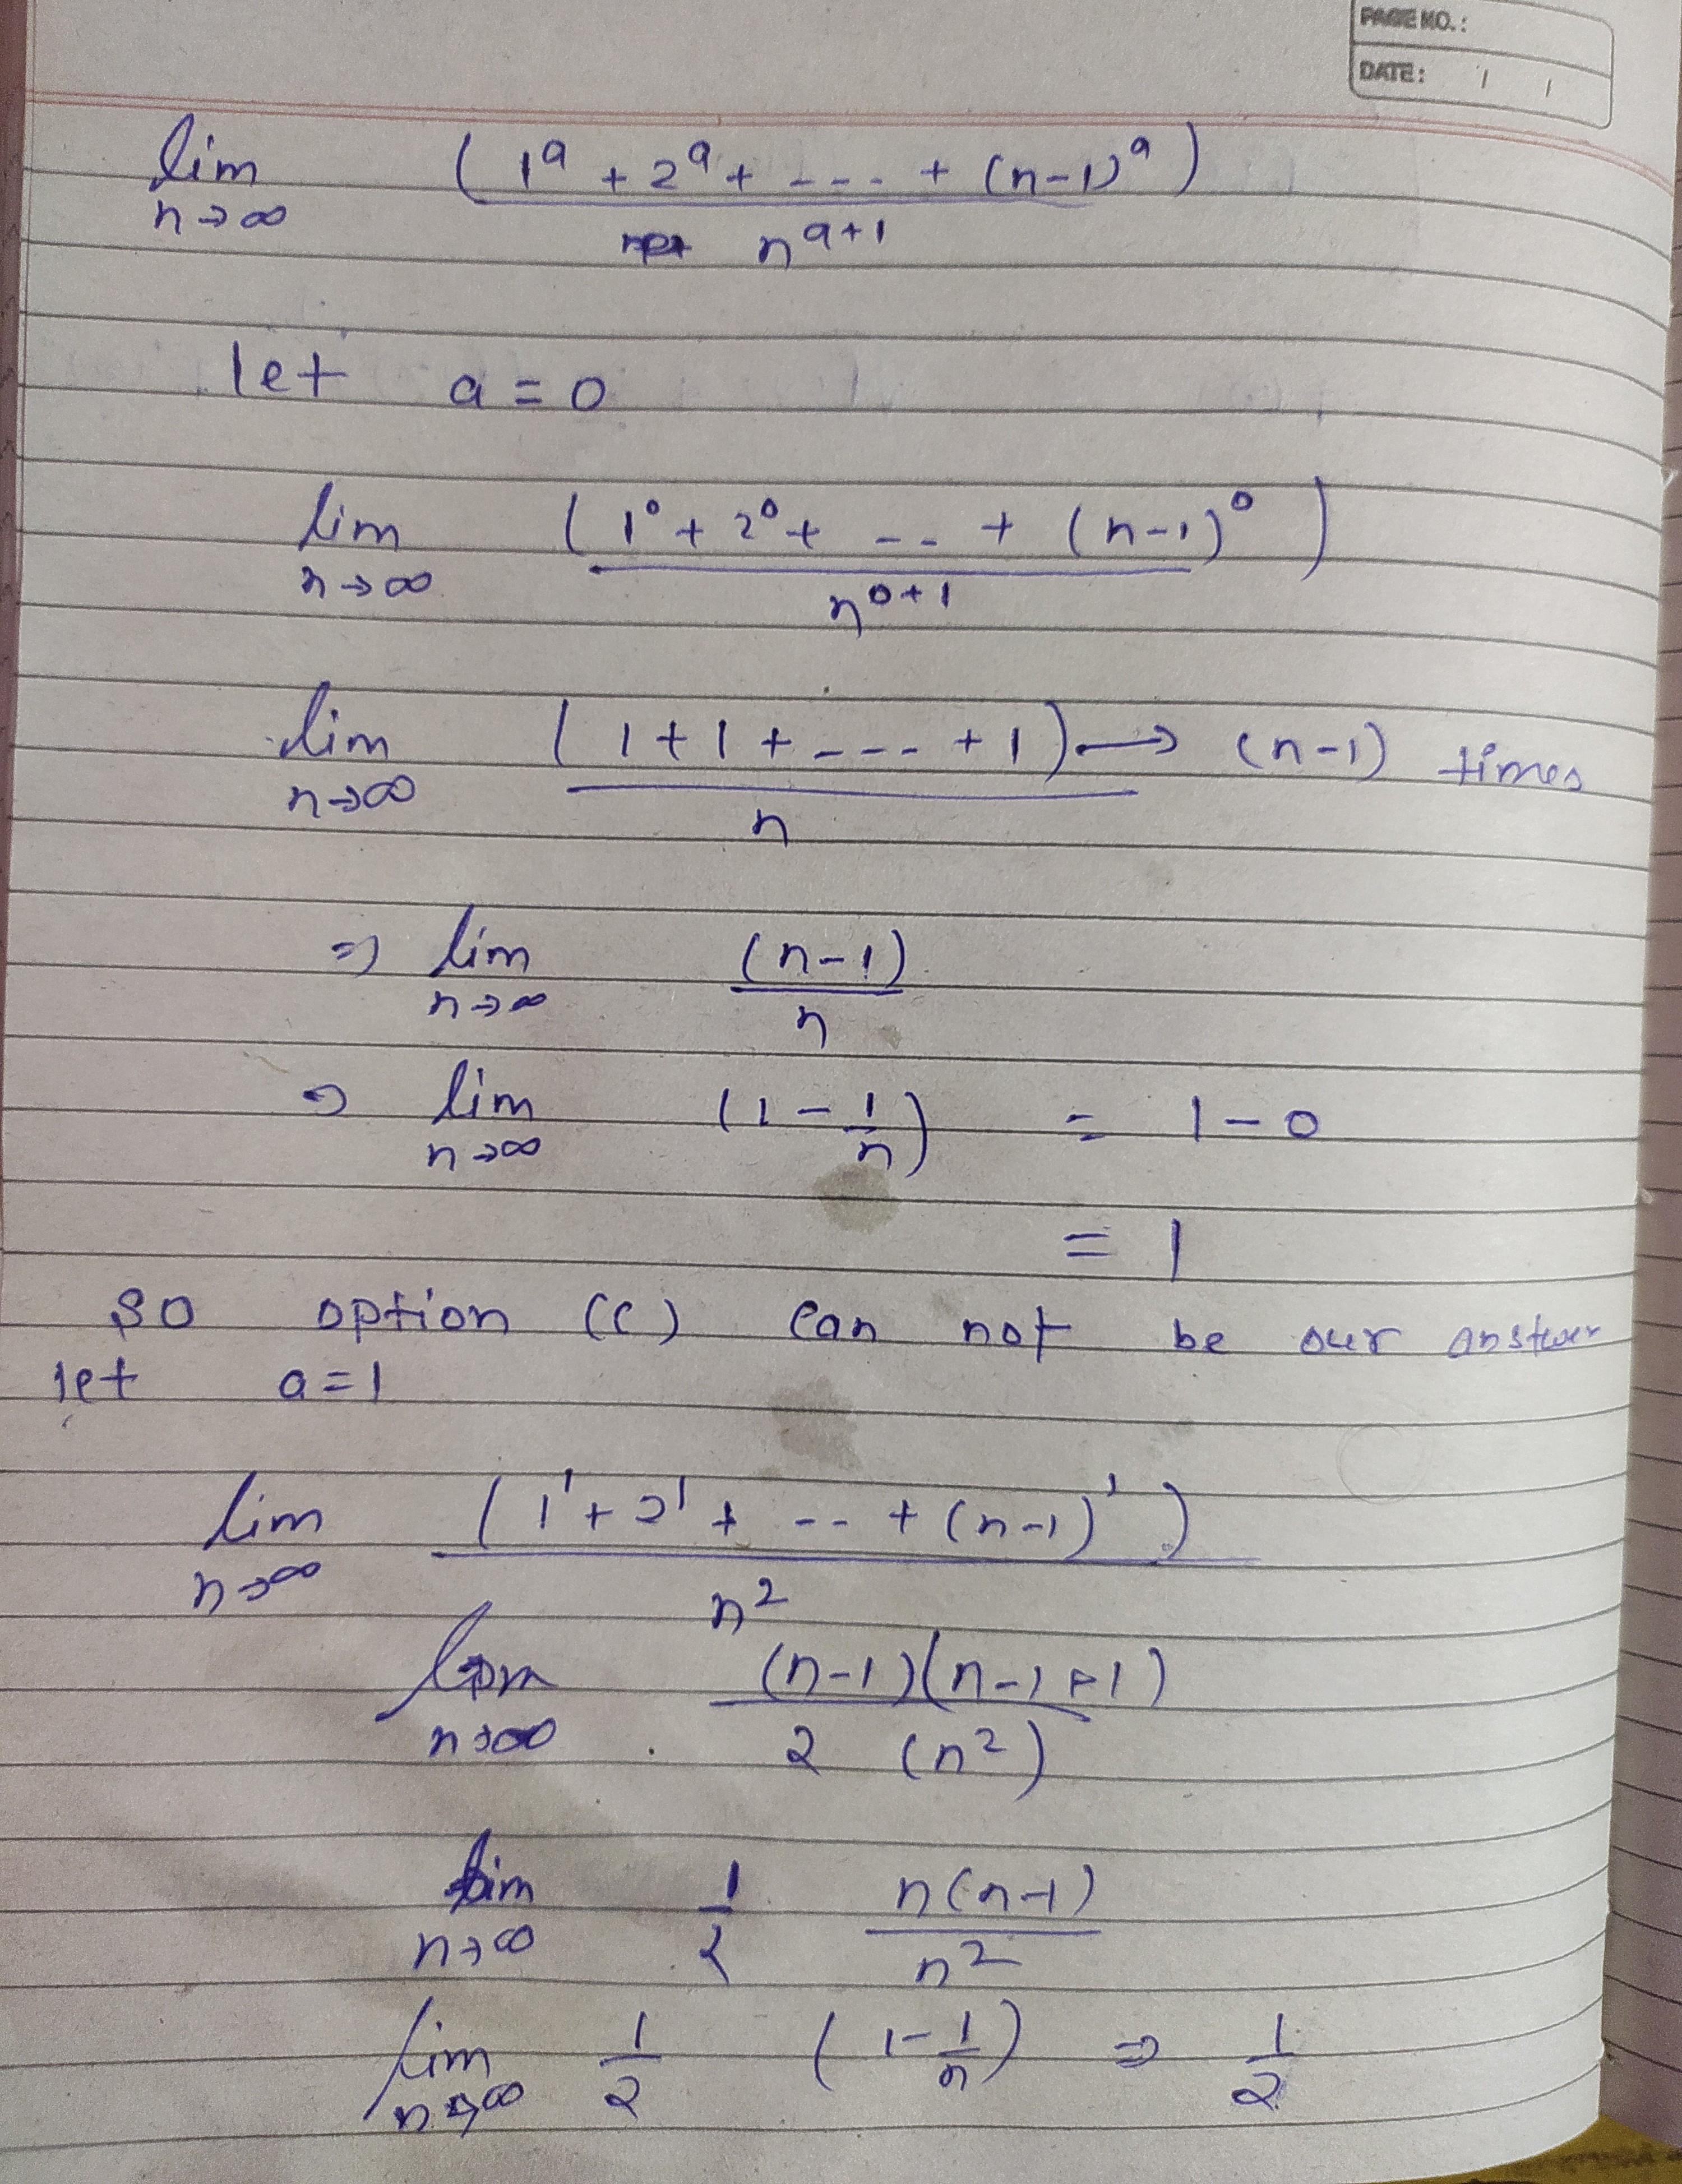 PAGE NO.:
DATE: / /
lim ( 1^a + 2^a + --- + (n-1)^a )
n→∞ n^a+1
let a = 0
lim ( 1^0 + 2^0 + -- + (n-1)^0 )
n→∞ n^0+1
lim ( 1+1+ --- +1 ) → (n-1) times
n→∞ n
⇒ lim (n-1)
n→∞ n
⇒ lim (1 - 1/n) = 1-0
n→∞
= 1
so option (c) can not be our answer
let a=1
lim ( 1^1 + 2^1 + -- + (n-1)^1 )
n→∞ n^2
lim (n-1)(n-1+1)
n→∞ 2 (n^2)
lim 1/2 n(n-1)
n→∞ n^2
lim 1/2 ( 1-1/n ) ⇒ 1/2
n→∞